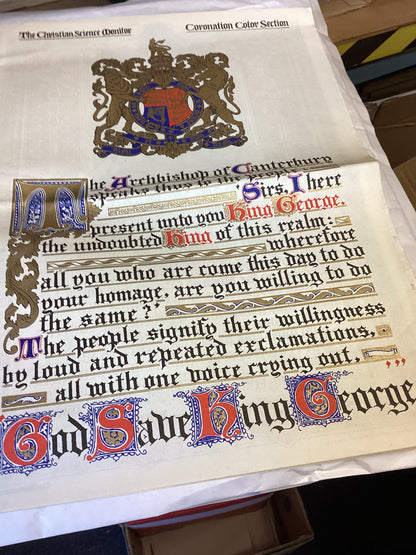 The Christian Science Monitor
Coronation Color Section
The Archbishop of Canterbury
speaks thus to the people
'Sirs, I here
present unto you King George,
the undoubted King of this realm:
wherefore
all you who are come this day to do
your homage, are you willing to do
the same?'
The people signify their willingness
by loud and repeated exclamations,
all with one voice crying out,
"God Save King George"